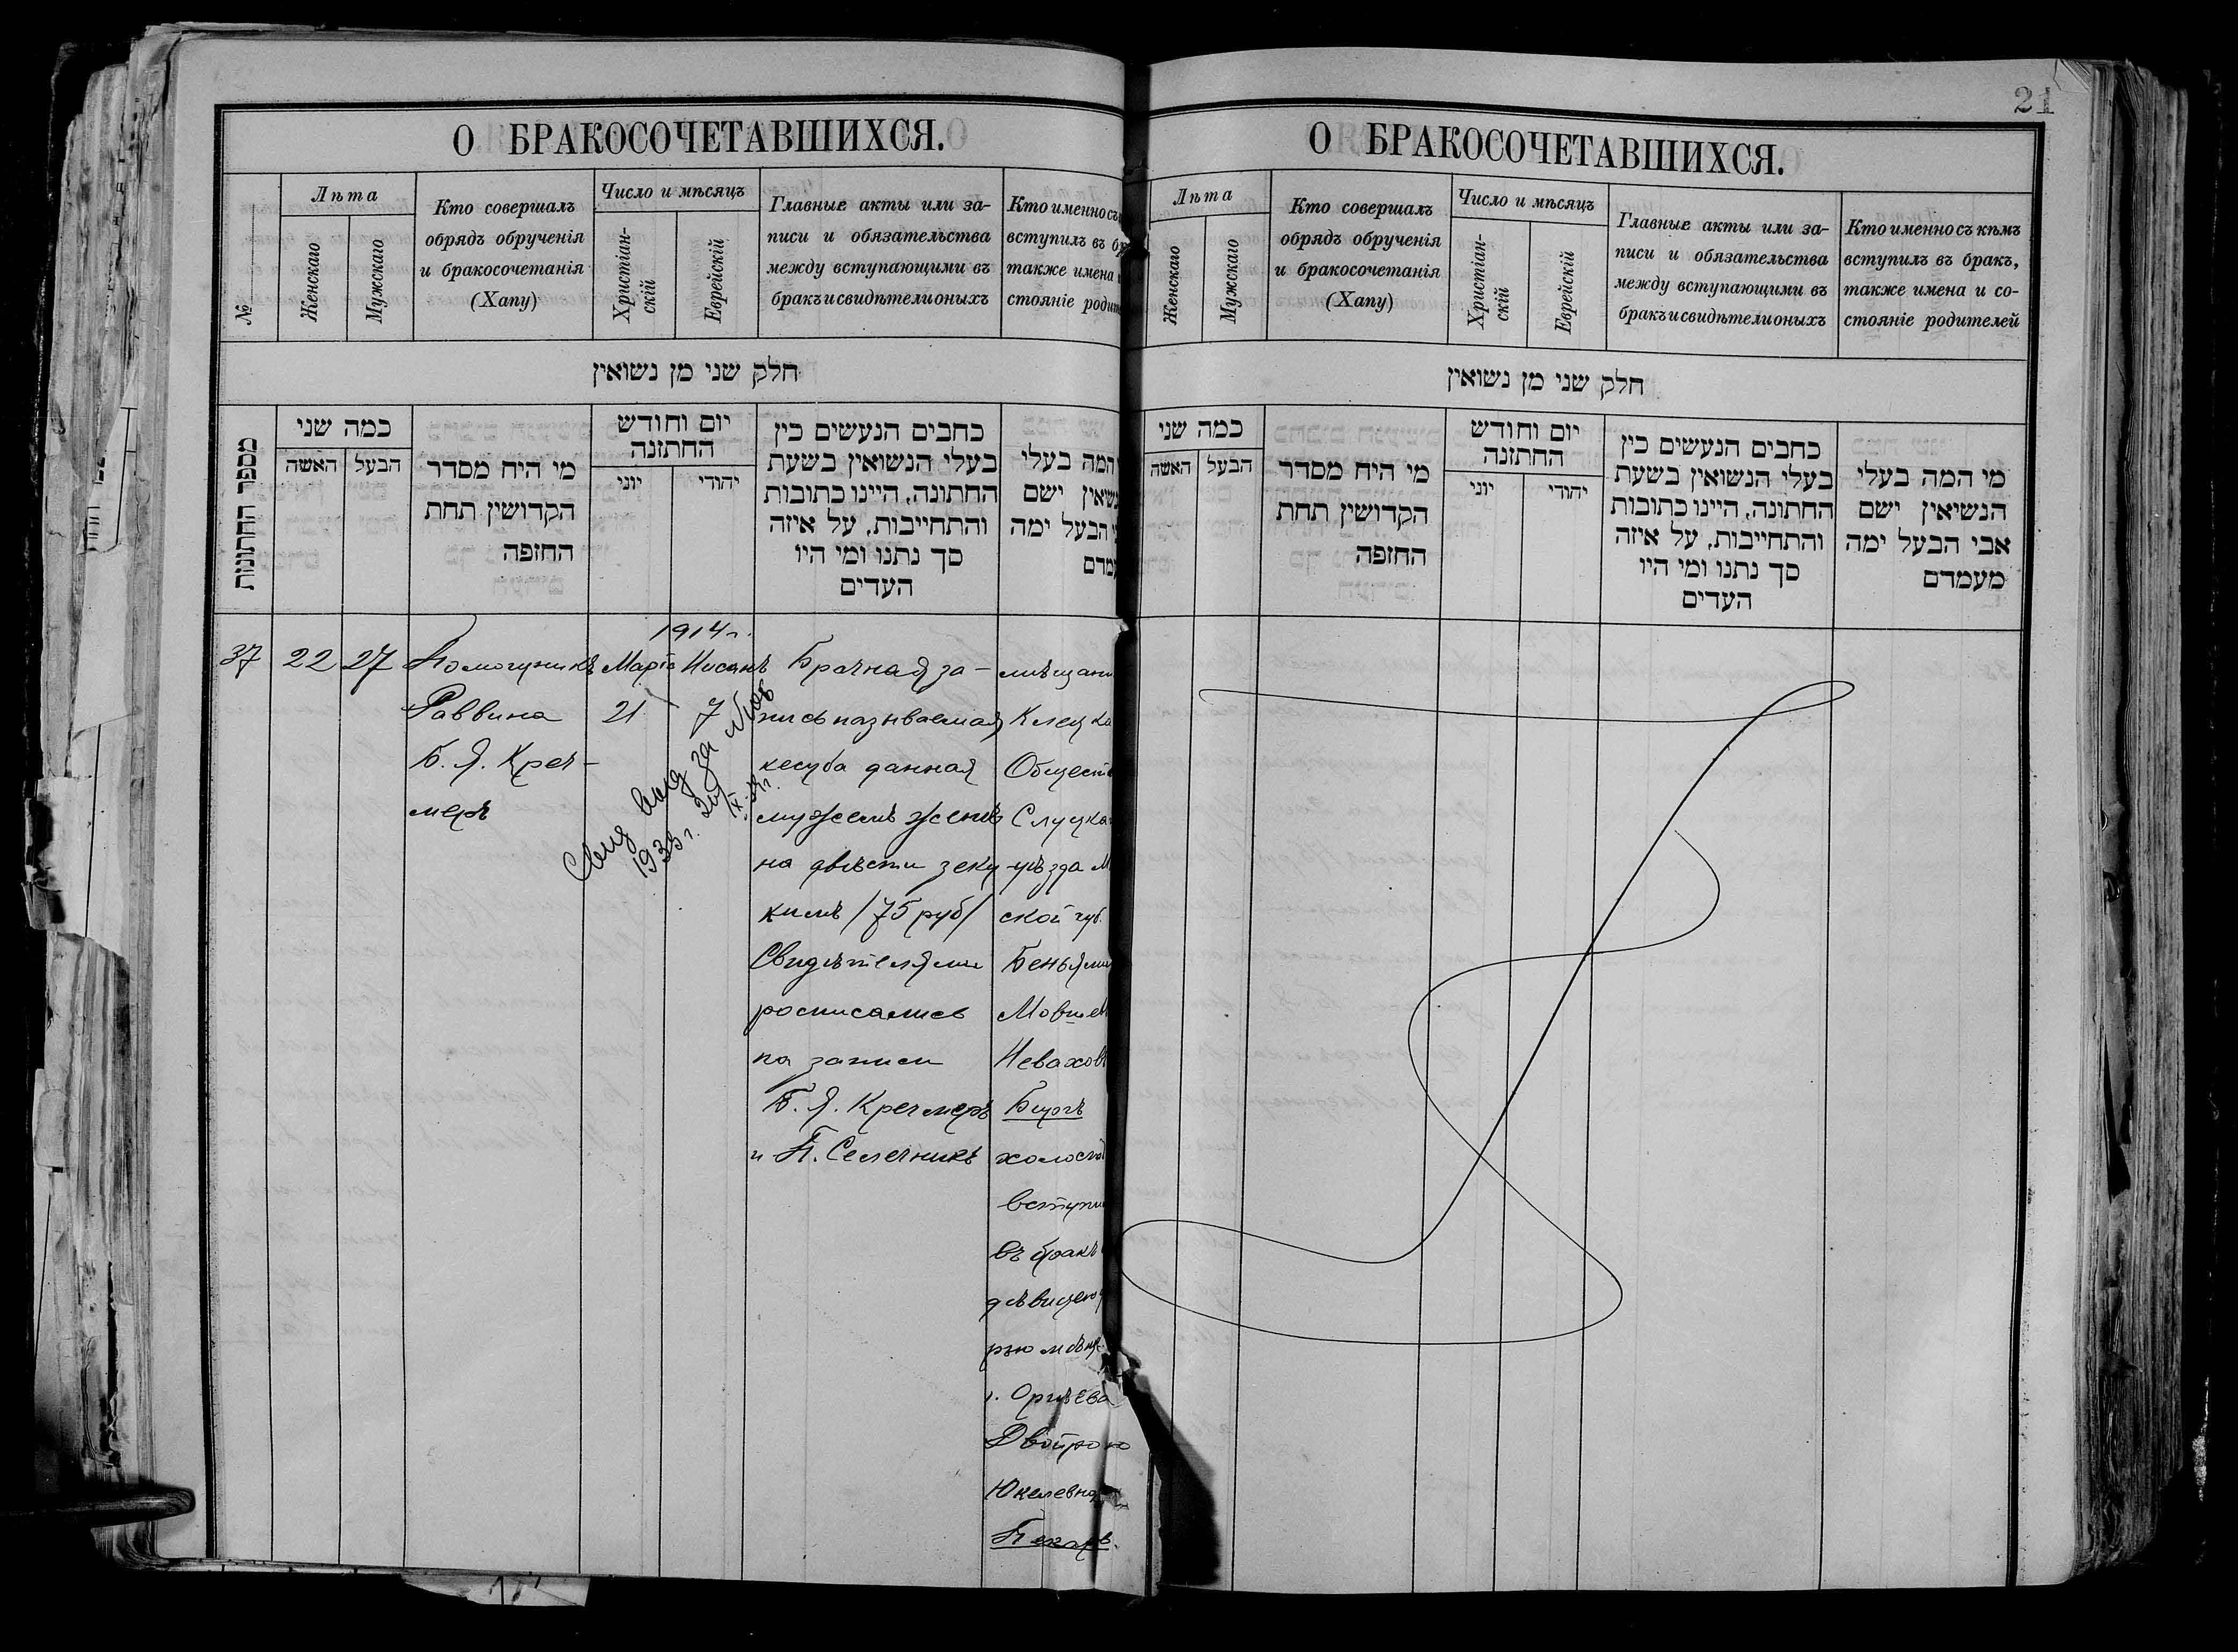 21
О БРАКОСОЧЕТАВШИХСЯ.
№
Лѣта
Женскаго
Мужскаго
Кто совершалъ
обрядъ обрученія
и бракосочетанія
(Хапу)
Число и мѣсяцъ
Христіан-
скій
Еврейскій
Главные акты или за-
писи и обязательства
между вступающими въ
бракъ и свидѣтели оныхъ
Кто именно съ
вступилъ въ бр
также имена и
стояніе родит
חלק שני מן נשואין
מספר החתונות
כמה שני
האשה
הבעל
מי היח מסדר
הקדושין תחת
החופה
יום וחודש
החתונה
יוני
יהודי
כחבים הנעשים כין
בעלי הנשואין בשעת
החתונה, היינו כתובות
והתחייבות, על איזה
סך נתנו ומי היו
העדים
המה בעלי
שיאין ישם
י הבעל ימה
עמדם
37
22
27
Помощникъ
Раввина
Б. Я. Креч-
меръ
1914 г.
Мартъ
21
Нисанъ
7
Свид выд за №
1933 г.
Брачная за-
пись называемая
кесуба данная
мужемъ женѣ
на двѣсти зеку
кимъ /75 руб/
Свидѣтелями
росписались
на записи
Б. Я. Кречмеръ
и П. Селечникъ
мѣщани
Клецка
Обществ
Слуцка
уѣзда М
ской губ.
Беньямин
Мовшев
Невахов
Бургъ
холост
вступи
въ бракъ
дѣвицею
рью мѣщ
г. Оргѣева
Двойрою
Юкелевна
Пекаръ.
О БРАКОСОЧЕТАВШИХСЯ.
Лѣта
Женскаго
Мужскаго
Кто совершалъ
обрядъ обрученія
и бракосочетанія
(Хапу)
Число и мѣсяцъ
Христіан-
скій
Еврейскій
Главные акты или за-
писи и обязательства
между вступающими въ
бракъ и свидѣтели оныхъ
Кто именно съ кѣмъ
вступилъ въ бракъ,
также имена и со-
стояніе родителей
חלק שני מן נשואין
כמה שני
האשה
הבעל
מי היח מסדר
הקדושין תחת
החופה
יום וחודש
החתונה
יוני
יהודי
כחבים הנעשים כין
בעלי הנשואין בשעת
החתונה, היינו כתובות
והתחייבות, על איזה
סך נתנו ומי היו
העדים
מי המה בעלי
הנשיאין ישם
אבי הבעל ימה
מעמדם